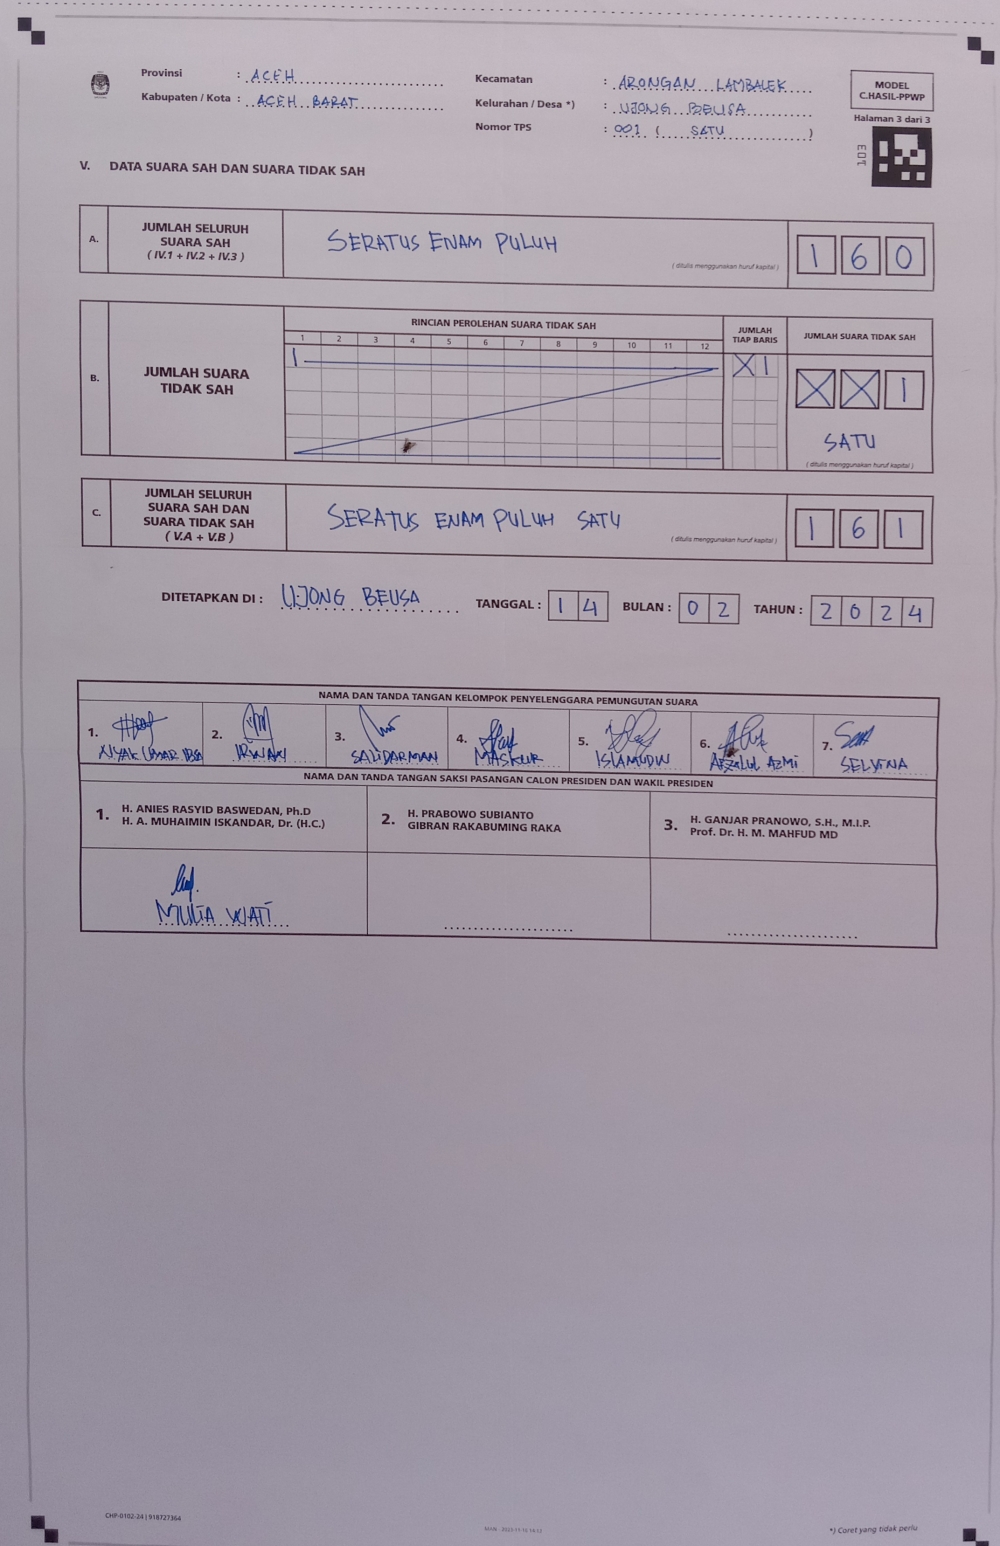 Provinsi : ACEH
Kabupaten / Kota : ACEH BARAT
Kecamatan : ARONGAN LAMBALEK
Kelurahan / Desa *) : UJONG BEUSA
Nomor TPS : 001 ( SATU )
MODEL
C.HASIL-PPWP
Halaman 3 dari 3
V. DATA SUARA SAH DAN SUARA TIDAK SAH
A. JUMLAH SELURUH
SUARA SAH
( IV.1 + IV.2 + IV.3 )
SERATUS ENAM PULUH
( ditulis menggunakan huruf kapital )
1 6 0
B. JUMLAH SUARA
TIDAK SAH
RINCIAN PEROLEHAN SUARA TIDAK SAH
1 2 3 4 5 6 7 8 9 10 11 12
JUMLAH
TIAP BARIS
X 1
JUMLAH SUARA TIDAK SAH
X X 1
SATU
( ditulis menggunakan huruf kapital )
C. JUMLAH SELURUH
SUARA SAH DAN
SUARA TIDAK SAH
( V.A + V.B )
SERATUS ENAM PULUH SATU
( ditulis menggunakan huruf kapital )
1 6 1
DITETAPKAN DI : UJONG BEUSA TANGGAL : 1 4 BULAN : 0 2 TAHUN : 2 0 2 4
NAMA DAN TANDA TANGAN KELOMPOK PENYELENGGARA PEMUNGUTAN SUARA
1. 2. 3. 4. 5. 6. 7.
NYAK UMAR IRWAN SALIDARMAN MASKUR ISLAMUDIN AFZALUL AZMI SELVINA
NAMA DAN TANDA TANGAN SAKSI PASANGAN CALON PRESIDEN DAN WAKIL PRESIDEN
1. H. ANIES RASYID BASWEDAN, Ph.D
H. A. MUHAIMIN ISKANDAR, Dr. (H.C.)
2. H. PRABOWO SUBIANTO
GIBRAN RAKABUMING RAKA
3. H. GANJAR PRANOWO, S.H., M.I.P.
Prof. Dr. H. M. MAHFUD MD
MULIA WATI
CHP-0102-24 | 918727364
*) Coret yang tidak perlu